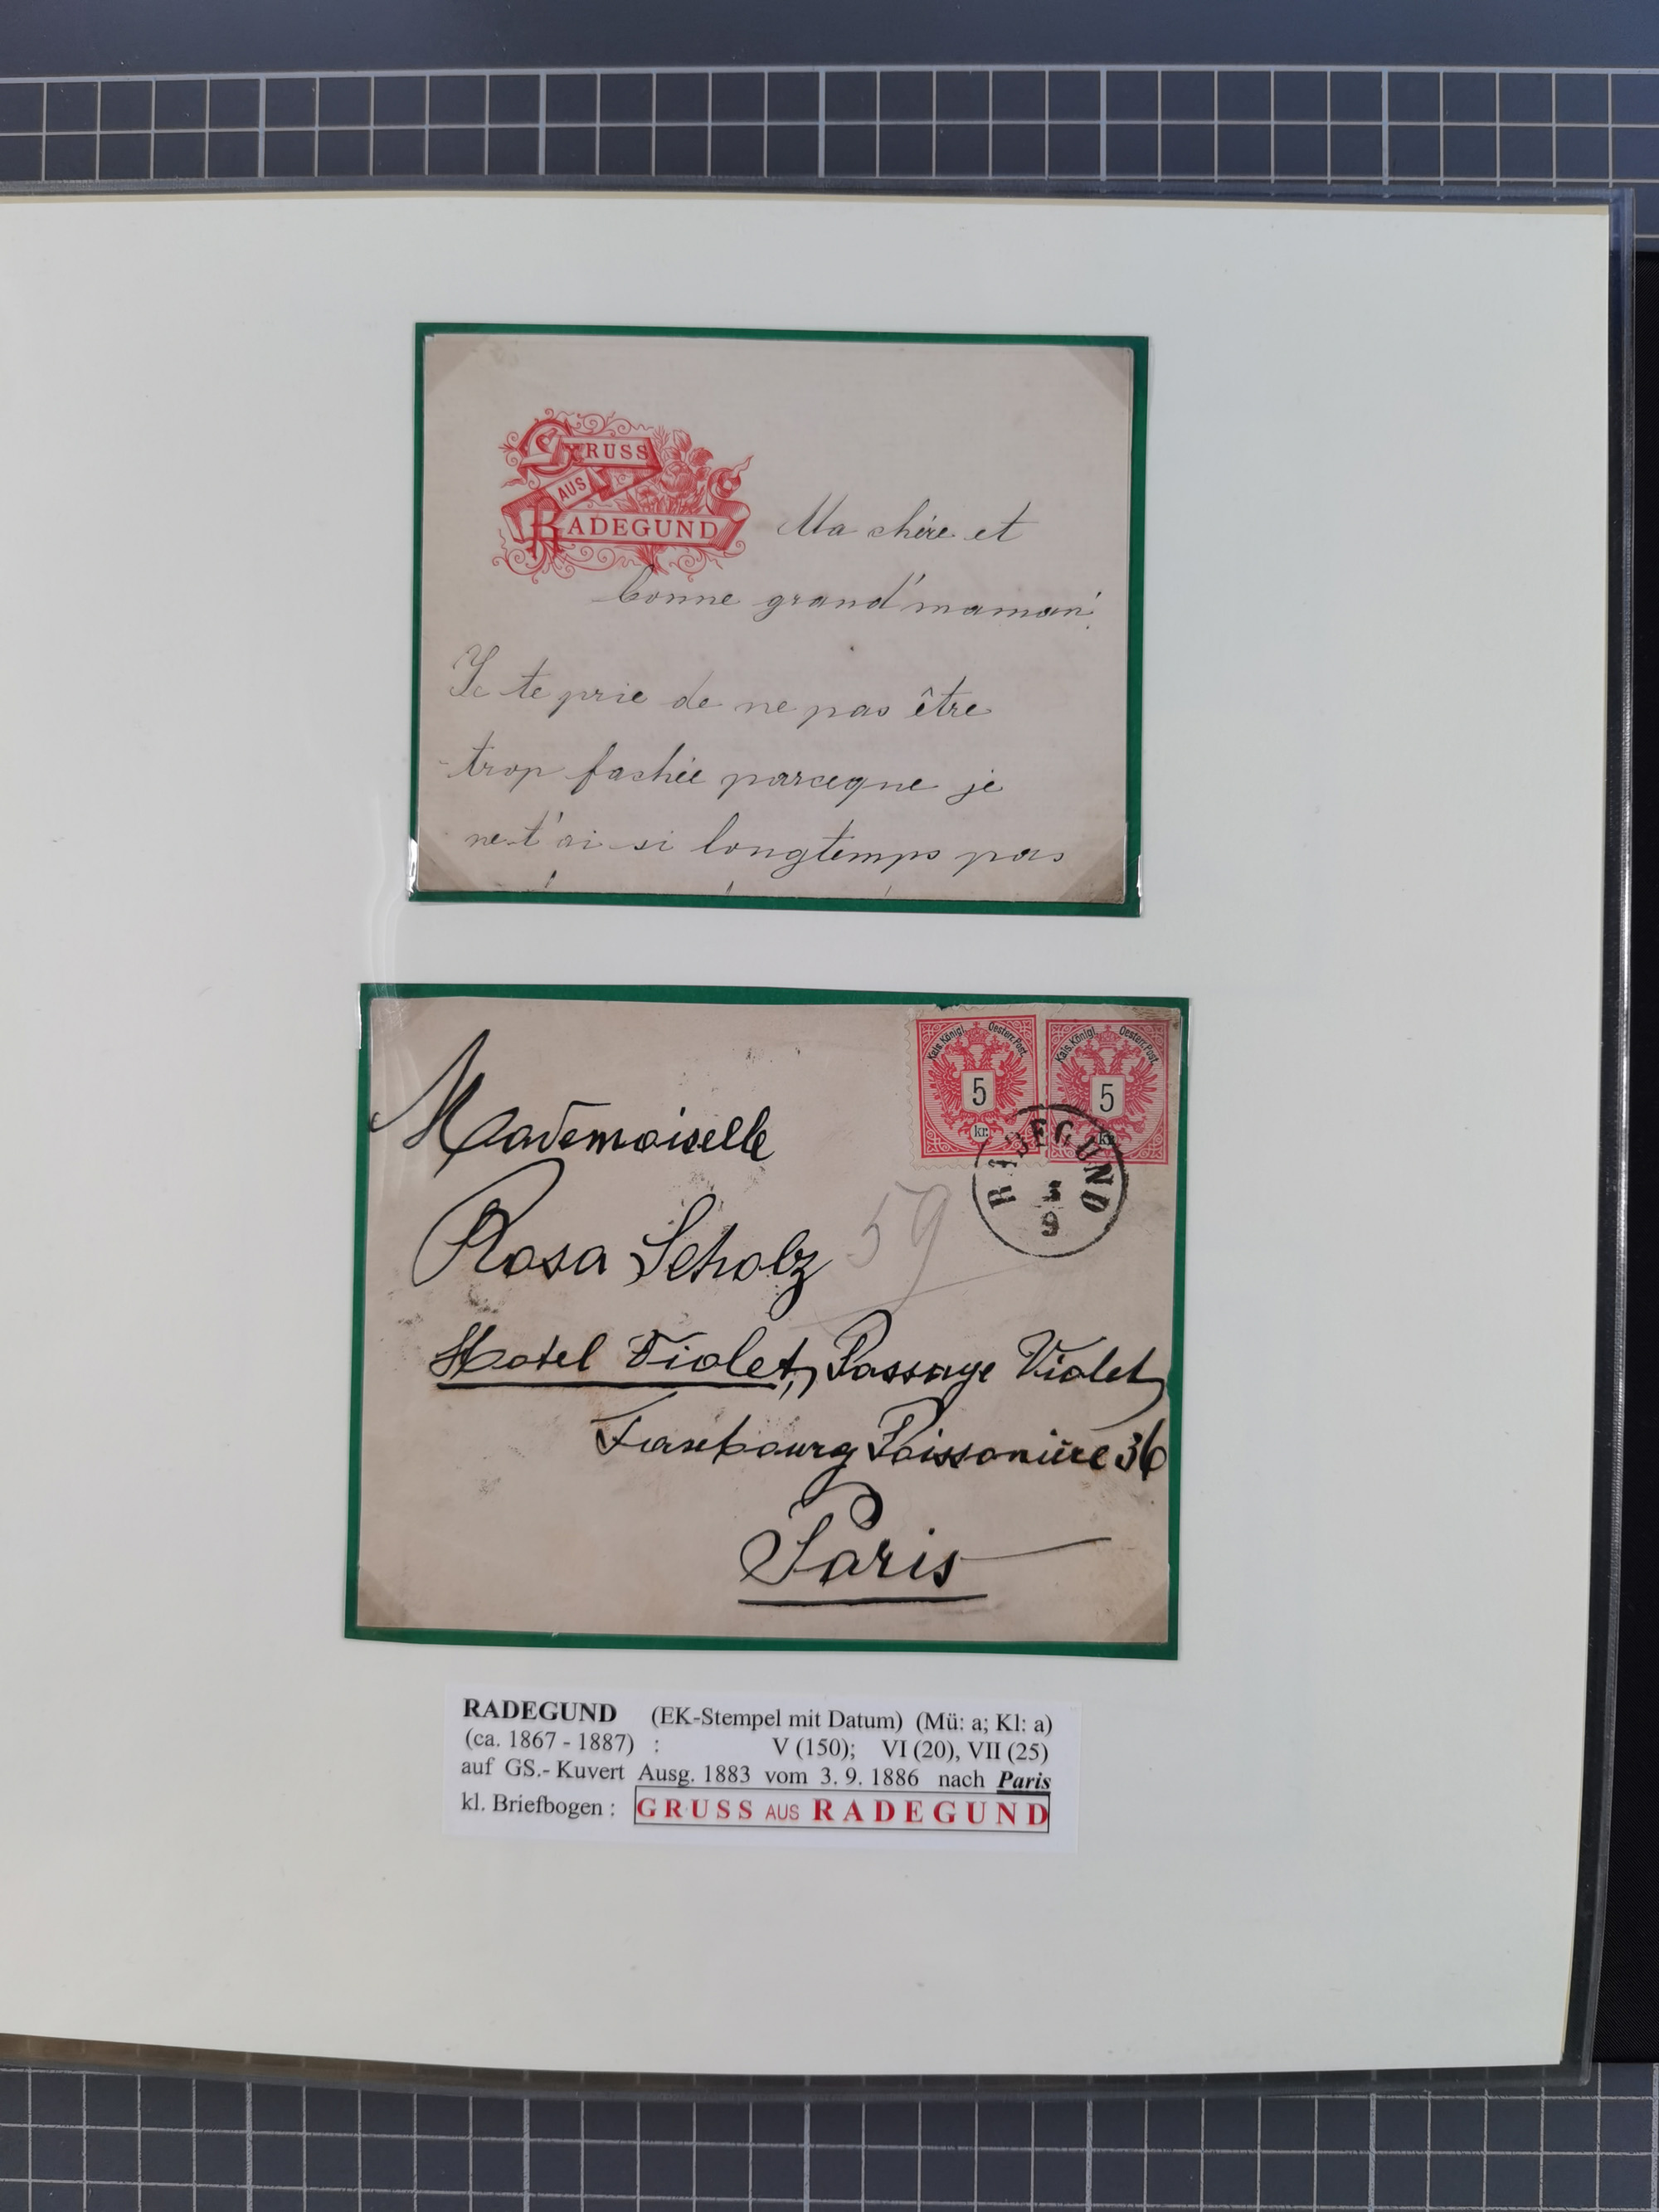 GRUSS
AUS
RADEGUND
Ma chère et
bonne grand'maman!
Je te prie de ne pas être
trop fachée parceque je
ne t'ai si longtemps pas
Kais. Königl. Oesterr. Post.
5
kr.
Kais. Königl. Oesterr. Post.
5
kr.
RADEGUND
3
9
Mademoiselle
Rosa Scholz
59
Hotel Violet, Passage Violet
Faubourg Poissonière 36
Paris
RADEGUND (EK-Stempel mit Datum) (Mü: a; Kl: a)
(ca. 1867 - 1887) : V (150); VI (20), VII (25)
auf GS.- Kuvert Ausg. 1883 vom 3. 9. 1886 nach Paris
kl. Briefbogen : GRUSS AUS RADEGUND